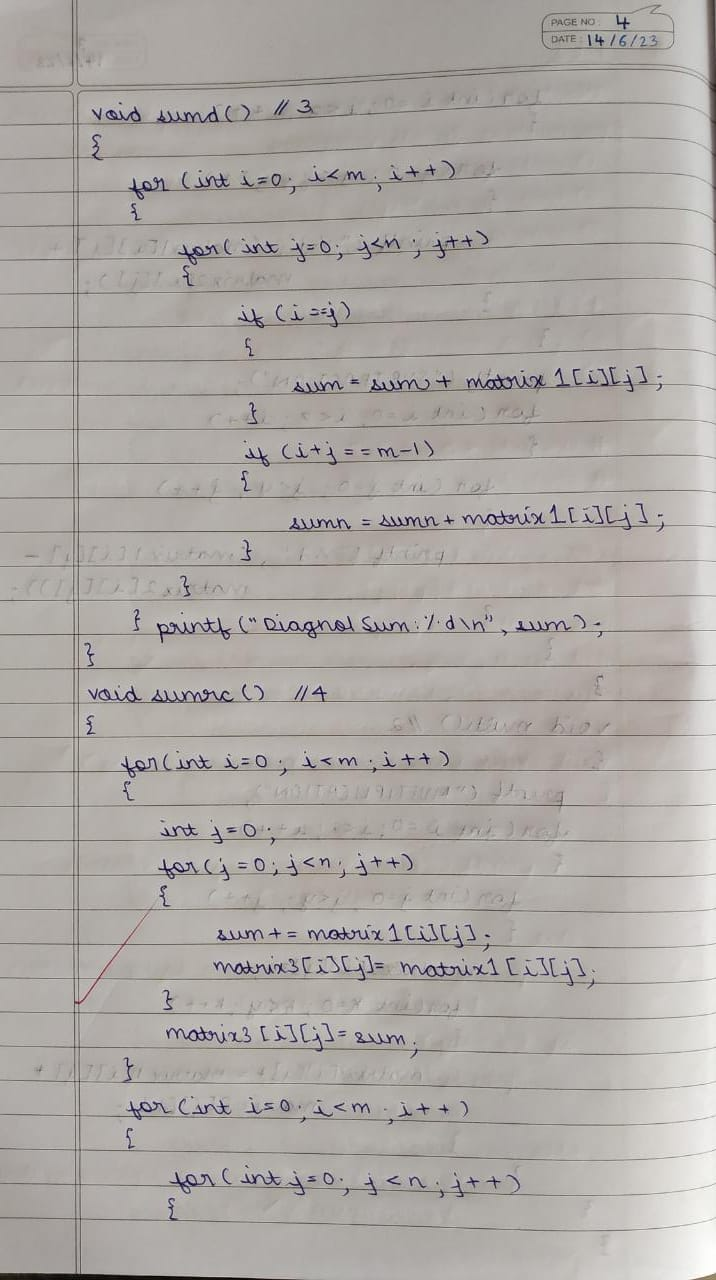 PAGE NO: 4
DATE: 14/6/23
void sumd() //3
{
for (int i=0; i<m; i++)
{
for( int j=0; j<n; j++)
{
if (i==j)
{
sum = sum + matrix 1[i][j];
}
if (i+j==m-1)
{
sumn = sumn + matrix1[i][j];
}
}
} printf ("Diagnol Sum: %d\n", sum);
}
void sumrc () //4
{
for(int i=0; i<m; i++)
{
int j=0;
for(j=0; j<n; j++)
{
sum += matrix1[i][j];
matrix3[i][j]= matrix1[i][j];
}
matrix3 [i][j]= sum;
}
for (int i=0; i<m; i++)
{
for ( int j=0; j<n; j++)
{